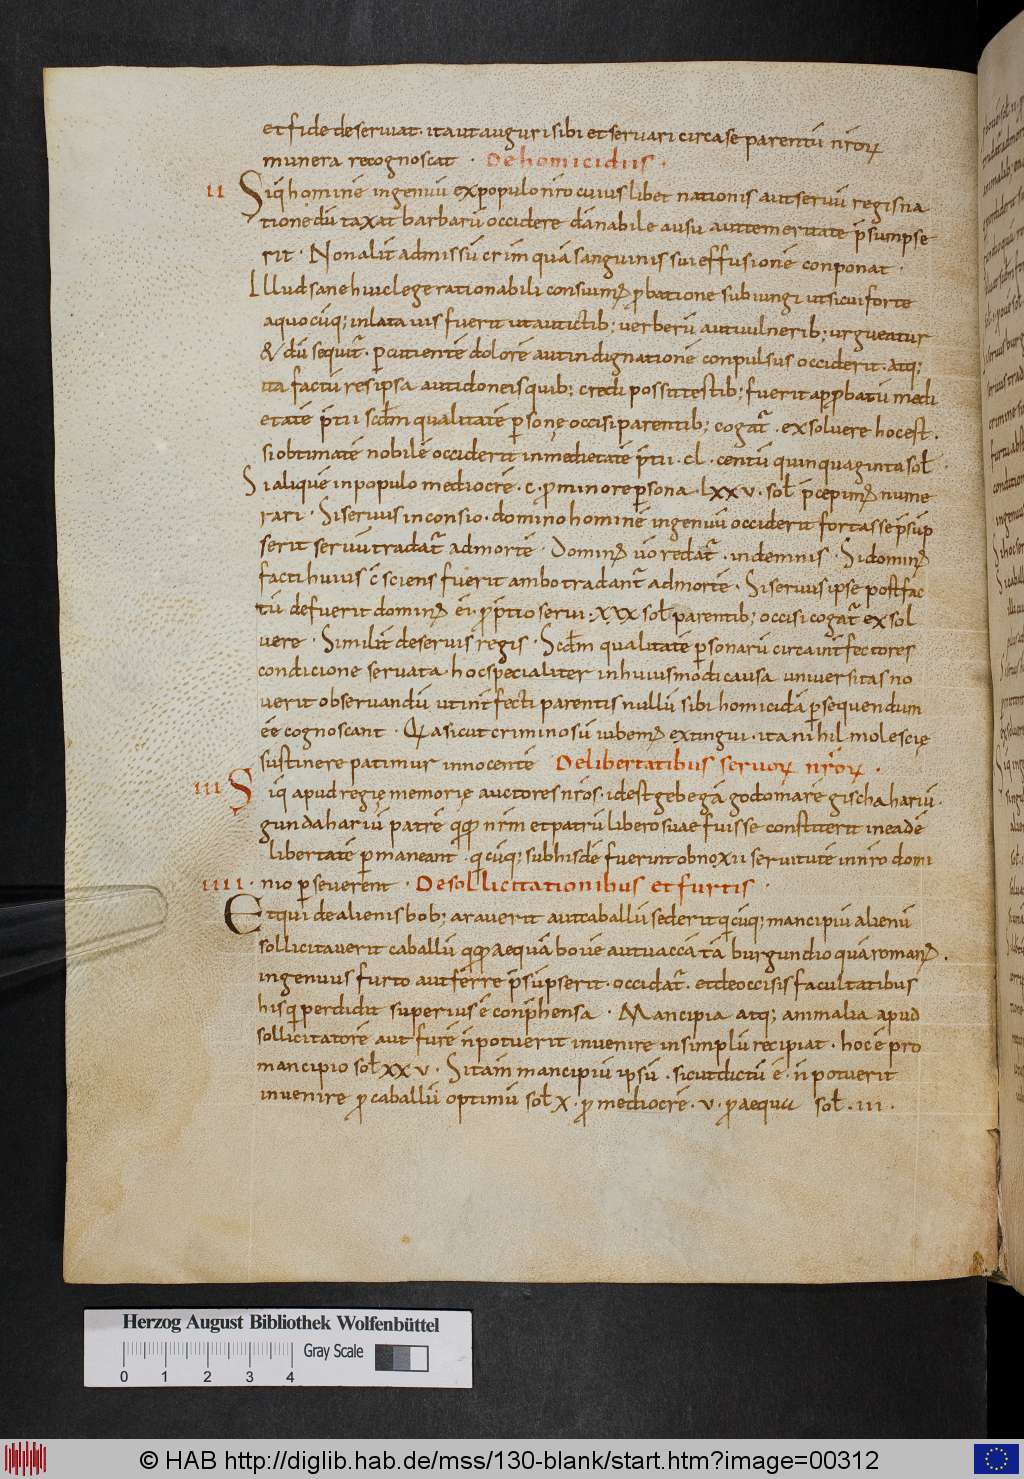 et fide deseruiat · it aut auguri sibi et seruari circa se parentū nr̄oꝝ
munera recognoscat · De homicidiis ·
II Siq̄ hominē ingenuū ex populo nr̄o cuius libet nationis aut seruū regis na
tione dū taxat barbarū occidere dānabile ausu aut temeritate p̄sumpse
rit · Non alit̄ admissū crim̄ quā sanguinis sui effusionē conponat ·
Illud sane huic lege rationabili consuim᷒ ꝓbatione subiungi ut si cui forte
a quocūq; inlata uis fuerit ut aut ictib; uerberū aut uulnerib; urgueatur
& dū sequit᷑ · ꝑcutientē dolore aut indignationē conpulsus occiderit · atq;
ita factū res ipsa aut idoneis quib; credi possit testib; fuerit apꝓbatū medi
etatē p̄tii scd̄m qualitatē ꝑsonę occisi parentib; cogat᷑ · exsoluere hoc est ·
si obtimatē nobilē occiderit in medietatē p̄tii · cl · centū quinquaginta sol̄
Si aliquē in populo mediocrē · c · ꝓ minore ꝑsona · lxxv · sol̄ p̄cepim᷒ nume
rari · Si seruus inconsio · domino hominē ingenuū occiderit fortasse p̄sūp
serit seruū tradat᷑ ad mortē · Domin᷒ uō redat᷑ · indemnis · Si domin᷒
facti huius c̄sciens fuerit ambo tradant᷑ ad mortē · Si seruus ipse post fac
tū defuerit domin᷒ ei · ꝓ p̄tio serui · xxx sol̄ parentib; occisi cogat᷑ exsol
uere · Similit̄ de seruis regis · Scd̄m qualitatē ꝑsonarū circa int̄fectores
condicione seruata · hoc specialiter in huius modi causa uniuersitas no
uerit obseruandū ut int̄fecti parentis nullū sibi homicidā ꝑsequendum
ēe cognoscant · Q̄a sicut criminosū iubem᷒ extingui · ita nihil molescię
sustinere patimur innocentē De libertatibus seruoꝝ nr̄oꝝ ·
III Siq̄ apud regię memorię auctores nr̄os · id est gebegā godomarē gischaharíū ·
gundahariū patrē q̄q̄ nr̄m et patrū liberos uae fuisse constiterit in eadē
libertatē ꝑmaneant · q̄cūq; sub hisdē fuerint obnoxii seruitutē in nr̄o domi
IIII · nio ꝑseuerent · De sollicitationibus et furtis ·
Et qui de alienis bob; arauerit aut caballū sederit q̄cūq; mancipiū alienū
sollicitauerit caballū q̄q̄ aequā bouē aut uaccā tā burgundio quā roman᷒ ·
ingenuus furto auferre p̄sūpserit · occidat᷑ · et de occisis facultatibus
his q̄ perdidit superius ē conp̄hensa · Mancipia atq; animalia apud
sollicitatorē aut furē n̄ potuerit inuenire in simplū recipiat · hoc ē pro
mancipio sol̄ xxv · Si tam̄ mancipiū ipsū · sicut dictū ē · n̄ potuerit
inuenire ꝓ caballū optimū sol̄ x · ꝓ mediocrē · v · ꝓ aequa sol̄ · iii ·
Herzog August Bibliothek Wolfenbüttel
Gray Scale
0 1 2 3 4
© HAB http://diglib.hab.de/mss/130-blank/start.htm?image=00312